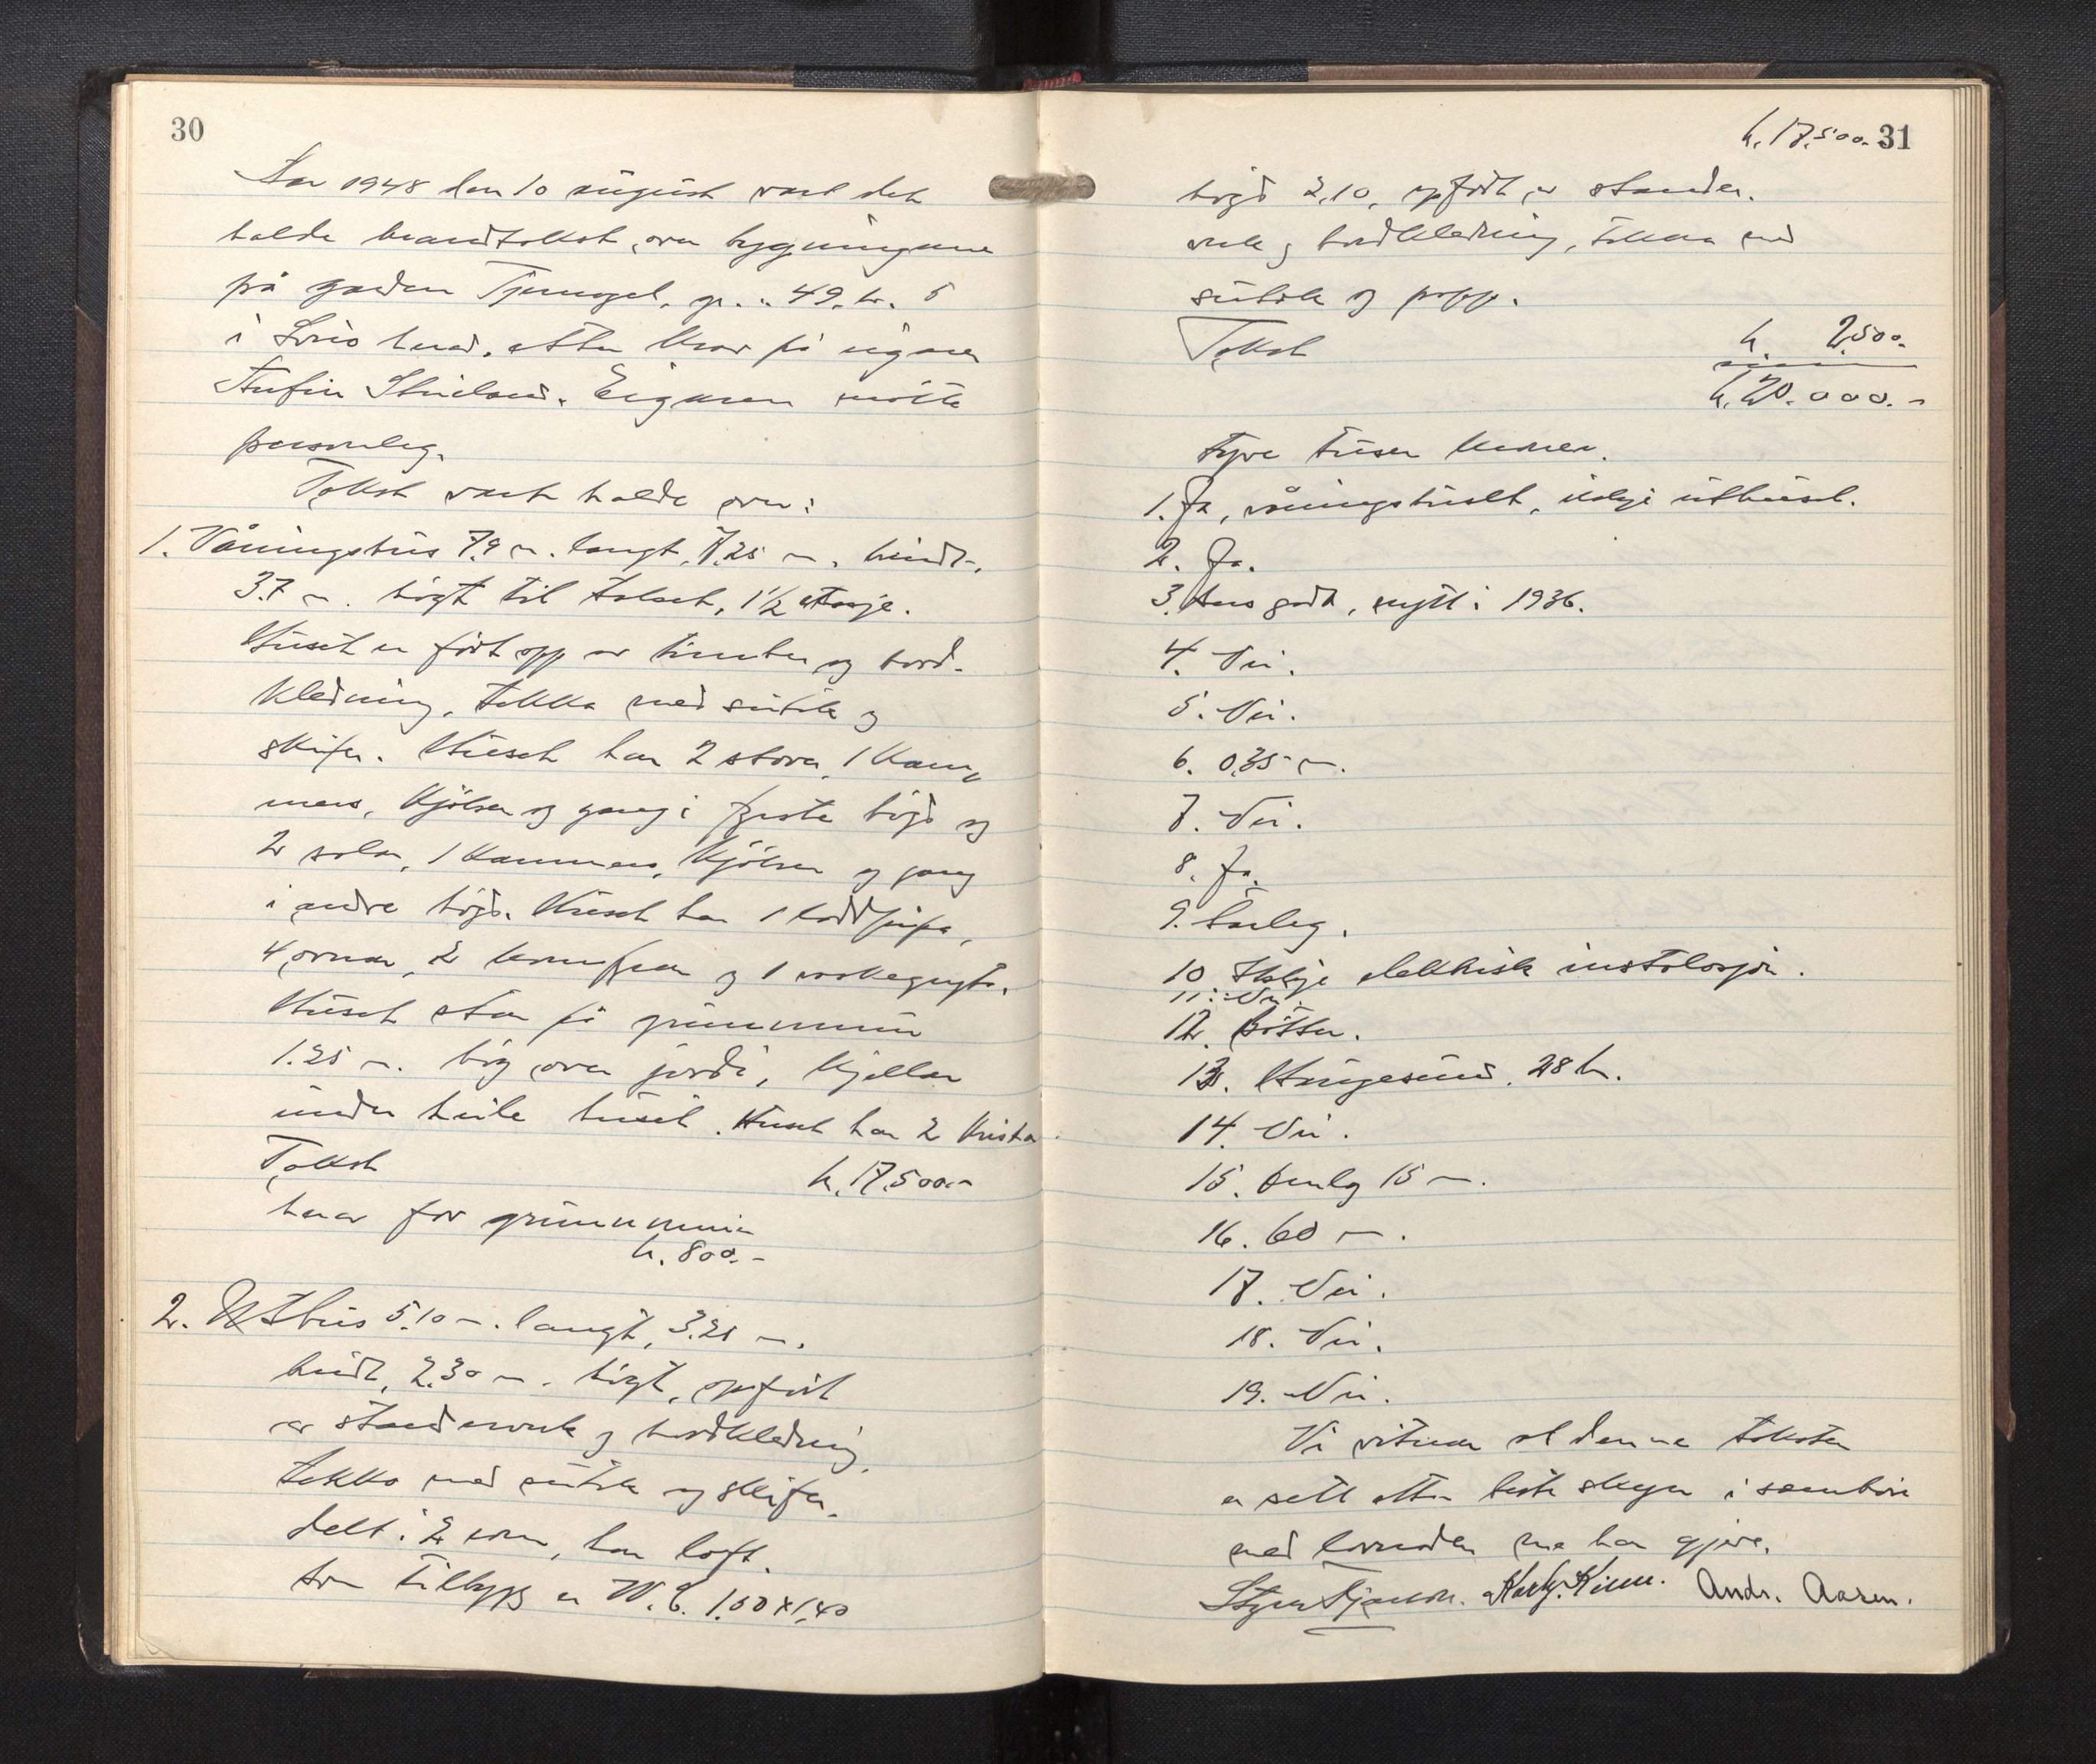 30
Aar 1948 den 10 august vart det
halde brandtakst over bygningane
på garden Tjernagel, gr. n. 49, br. 5
i Sveio herad, etter krav frå eigaren
Eigaren møtte
personleg.
Takst vart halde over:
1. Våningshus 7.9 m. langt, 7.25 m. breidt,
3.7 m. högt til taket, 1 1/2 etasje.
Huset er fört opp av timber og bord-
kledning, tekka med sutak og
skifer. Huset har 2 stover, 1 kam-
mers, kjöken og gang i fyrste högd og
2 salar, 1 kammers, kjöken og gang
i andre högd. Huset har 1 loddpipa,
4 omnar, 2 komfyrar og 1 vaskegryta.
Huset står på grunnmur
1.25 m. hög over jordi, kjellar
under heile huset. Huset har 2 kvistar
Takst kr. 17.500.-
herav for grunnmuren
kr. 800.-
2. Uthus 5.10 m. langt, 3.25 m.
breidt, 2.30 m. högt, opfört
av standerverk og bordkledning,
tekka med sutak og skifer.
delt i 2 rom, har loft.
Som tilbygg er W.C. 1.50 x 1.40
kr. 17.500.- 31
högd 2.10, opfört av stander-
verk og bordkledning, tekka med
sutak og papp.
Takst kr. 2500.-
kr. 20.000.-
Tyve tusen kroner.
1. Ja, våningshuset, ikkje uthuset.
2. Ja.
3. Hus godt, nytt i 1936.
4. Nei.
5. Nei.
6. 0.35 m.
7. Nei.
8. Ja.
9. Farleg.
10 Ikkje elektrisk instalasjon.
11. Nei.
12. Bötter.
13. Haugesund. 28 k.
14. Nei.
15. 15 m.
16. 60 m.
17. Nei.
18. Nei.
19. Nei.
Vi vitnar at denne taksten
er sett etter beste skyn i samhöve
med lovnaden me har gjeve.
And. Aasen.